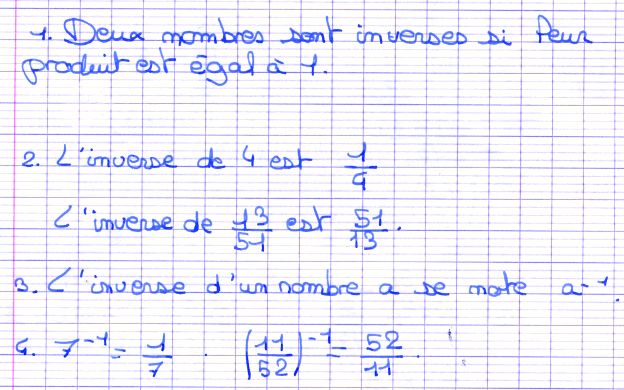 1. Deux nombres sont inverses si leur
produit est égal à 1.
2. L'inverse de 4 est 1/4
L'inverse de 13/51 est 51/13.
3. L'inverse d'un nombre a se note a⁻¹.
4. 7⁻¹ = 1/7 . (11/52)⁻¹ = 52/11.